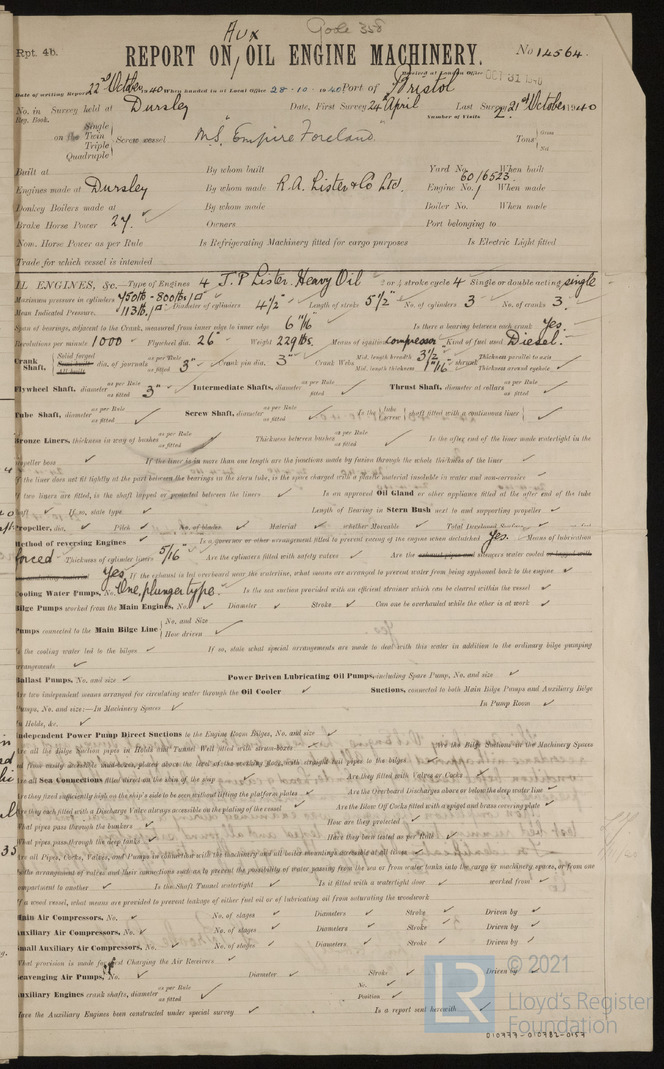 Aux Gode 358
Rpt. 4b.
REPORT ON OIL ENGINE MACHINERY.
No 14564.
Received at London Office OCT 31 1940
Date of writing Report 22nd October 1940 When handed in at Local Office 28-10-1940 Port of Bristol
No. in Survey held at Dursley Date, First Survey 24 April Last Survey 21st October 1940
Reg. Book. Number of Visits 2
on the Single Twin Triple Quadruple Screw vessel M.S. "Empire Foreland" Tons Gross Net
Built at By whom built Yard No. When built
Engines made at Dursley By whom made R.A. Lister & Co Ltd. Engine No. 60/6523 When made
Donkey Boilers made at By whom made Boiler No. When made
Brake Horse Power 27. Owners Port belonging to
Nom. Horse Power as per Rule Is Refrigerating Machinery fitted for cargo purposes Is Electric Light fitted
Trade for which vessel is intended
OIL ENGINES, &c. Type of Engines 4 J.P Lister Heavy Oil 2 or 4 stroke cycle 4 Single or double acting single
Maximum pressure in cylinders 750lb - 800lbs/□" Diameter of cylinders 4 1/2" Length of stroke 5 1/2" No. of cylinders 3 No. of cranks 3.
Mean Indicated Pressure. 113lb/□"
Span of bearings, adjacent to the Crank, measured from inner edge to inner edge 6 11/16" Is there a bearing between each crank Yes.
Revolutions per minute 1000 Flywheel dia. 26" Weight 229 lbs. Means of ignition compression Kind of fuel used Diesel.
Crank Shaft, Solid forged dia. of journals as per Rule as fitted 3" Crank pin dia. 3" Crank Webs Mid. length breadth 3 1/2" Mid. length thickness 1 1/16" shrunk Thickness parallel to axis Thickness around eyehole
Flywheel Shaft, diameter as per Rule as fitted 3" Intermediate Shafts, diameter as per Rule as fitted Thrust Shaft, diameter at collars as per Rule as fitted
Tube Shaft, diameter as per Rule as fitted Screw Shaft, diameter as per Rule as fitted Is the tube screw shaft fitted with a continuous liner
Bronze Liners, thickness in way of bushes as per Rule as fitted Thickness between bushes as per Rule as fitted Is the after end of the liner made watertight in the
propeller boss If the liner is in more than one length are the junctions made by fusion through the whole thickness of the liner
If the liner does not fit tightly at the part between the bearings in the stern tube, is the space charged with a plastic material insoluble in water and non-corrosive
If two liners are fitted, is the shaft lapped or protected between the liners Is an approved Oil Gland or other appliance fitted at the after end of the tube
shaft If so, state type Length of Bearing in Stern Bush next to and supporting propeller
Propeller, dia. Pitch No. of blades Material whether Moveable Total Developed Surface
Method of reversing Engines Is a governor or other arrangement fitted to prevent racing of the engine when declutched Yes. Means of lubrication
forced Thickness of cylinder liners 5/16" Are the cylinders fitted with safety valves Are the exhaust pipes and silencers water cooled or lagged with
non-conducting material Yes If the exhaust is led overboard near the waterline, what means are arranged to prevent water from being syphoned back to the engine
Cooling Water Pumps, No. One, plunger type. Is the sea suction provided with an efficient strainer which can be cleared within the vessel
Bilge Pumps worked from the Main Engines, No. Diameter Stroke Can one be overhauled while the other is at work
Pumps connected to the Main Bilge Line No. and Size How driven
Is the cooling water led to the bilges If so, state what special arrangements are made to deal with this water in addition to the ordinary bilge pumping
arrangements
Ballast Pumps, No. and size Power Driven Lubricating Oil Pumps, including Spare Pump, No. and size
Are two independent means arranged for circulating water through the Oil Cooler Suctions, connected to both Main Bilge Pumps and Auxiliary Bilge
Pumps, No. and size:—In Machinery Spaces In Pump Room
In Holds, &c.
Independent Power Pump Direct Suctions to the Engine Room Bilges, No. and size
Are all the Bilge Suction pipes in Holds and Tunnel Well fitted with strum-boxes Are the Bilge Suctions in the Machinery Spaces
led from easily accessible mud-boxes, placed above the level of the working floor, with straight tail pipes to the bilges
Are all Sea Connections fitted direct on the skin of the ship Are they fitted with Valves or Cocks
Are they fixed sufficiently high on the ship's side to be seen without lifting the platform plates Are the Overboard Discharges above or below the deep water line
Are they each fitted with a Discharge Valve always accessible on the plating of the vessel Are the Blow Off Cocks fitted with a spigot and brass covering plate
What pipes pass through the bunkers How are they protected
What pipes pass through the deep tanks Have they been tested as per Rule
Are all Pipes, Cocks, Valves, and Pumps in connection with the machinery and all boiler mountings accessible at all times
Is the arrangement of valves and their connections such as to prevent the possibility of water passing from the sea or from water tanks into the cargo or machinery spaces, or from one
compartment to another Is the Shaft Tunnel watertight Is it fitted with a watertight door worked from
If a wood vessel, what means are provided to prevent leakage of either fuel oil or of lubricating oil from saturating the woodwork
Main Air Compressors, No. No. of stages Diameters Stroke Driven by
Auxiliary Air Compressors, No. No. of stages Diameters Stroke Driven by
Small Auxiliary Air Compressors, No. No. of stages Diameters Stroke Driven by
What provision is made for first Charging the Air Receivers
Scavenging Air Pumps, No. Diameter Stroke Driven by
Auxiliary Engines crank shafts, diameter as per Rule as fitted No. Position
Have the Auxiliary Engines been constructed under special survey Is a report sent herewith
© 2021
LR Lloyd's Register Foundation
010777-010782-0157